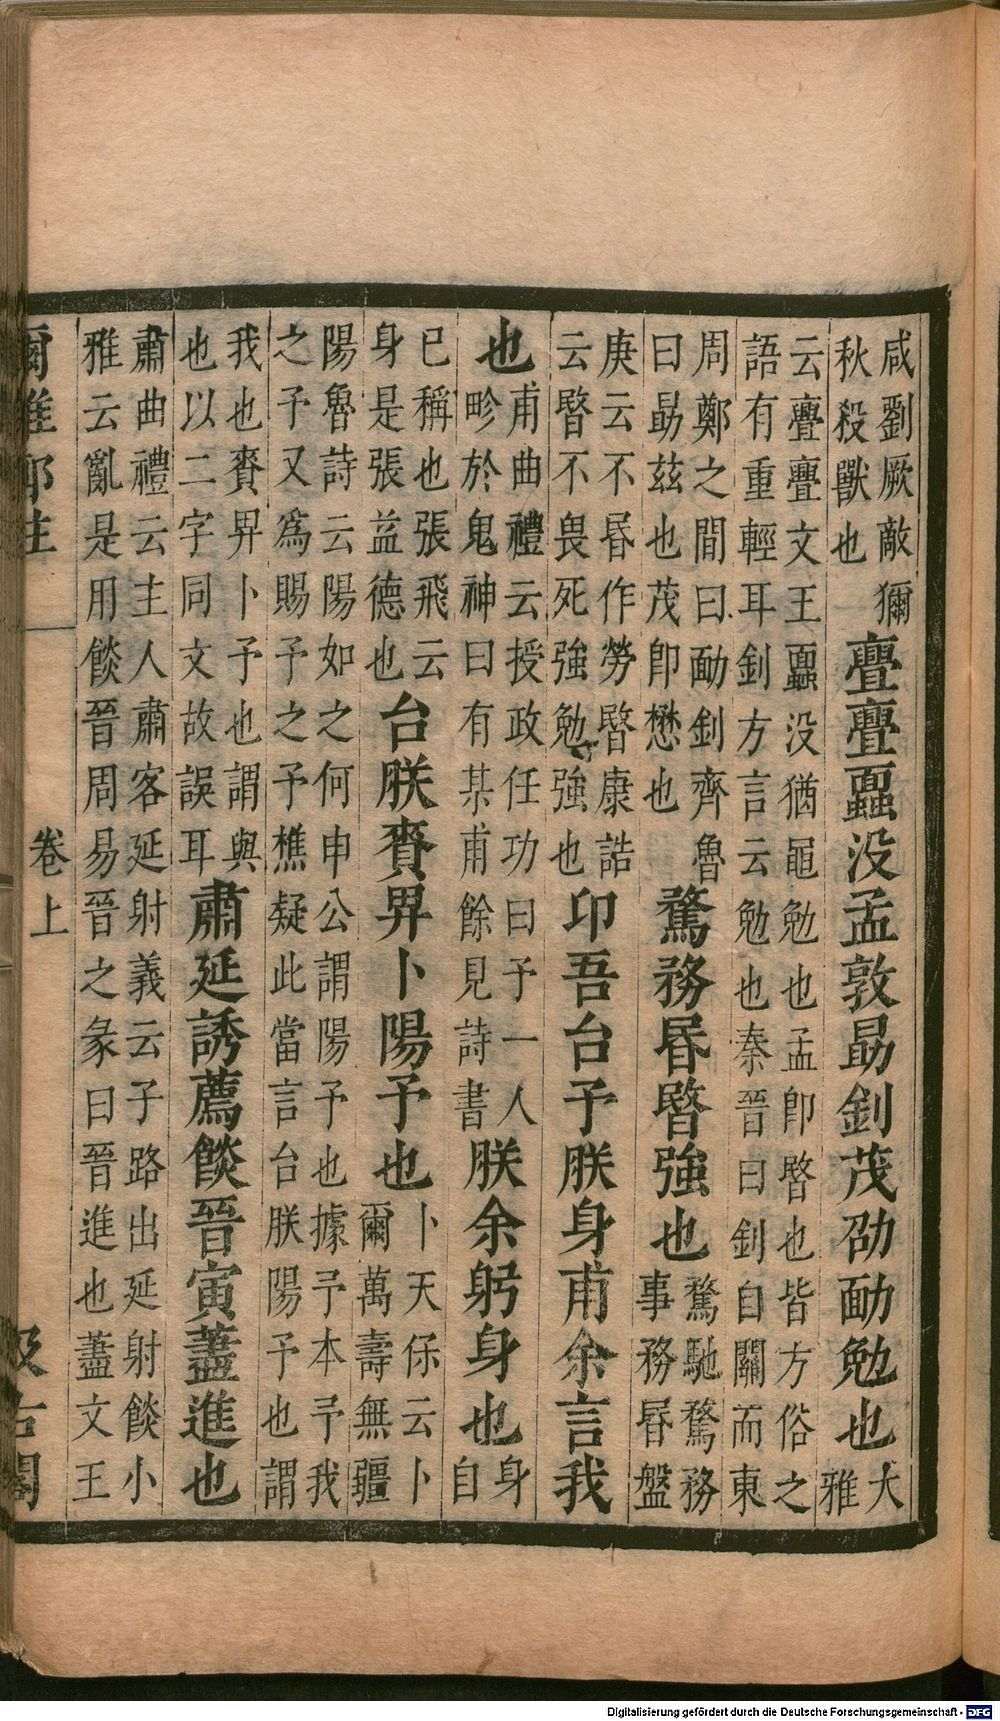 咸劉厥敵獮秋殺獸也亹亹蠠没孟敦勗釗茂劭勔勉也大雅
云亹亹文王蠠没猶黽勉也孟即暋也皆方俗之語有重輕耳釗方言云勉也秦晉曰釗自關而東
周鄭之間曰勔釗齊魯曰勗茲也茂即懋也騖務昬暋強也騖馳騖務事務昬盤
庚云不昬作勞暋康誥云暋不畏死強勉強也卬吾台予朕身甫余言我
也甫曲禮云授政任功曰予一人畛於鬼神曰有某甫餘見詩書朕余躬身也身自
已稱也張飛云身是張益德也台朕賚畀卜陽予也卜天保云卜爾萬壽無疆
陽魯詩云陽如之何申公謂陽予也據予本予我之予又爲賜予之予樵疑此當言台朕陽予也謂
我也賚畀卜予也謂與也以二字同文故誤耳肅延誘薦餤晉寅藎進也
肅曲禮云主人肅客延射義云子路出延射餤小雅云亂是用餤晉周易晉之彖曰晉進也藎文王
爾雅郭注 卷上 汲古閣
Digitalisierung gefördert durch die Deutsche Forschungsgemeinschaft - DFG